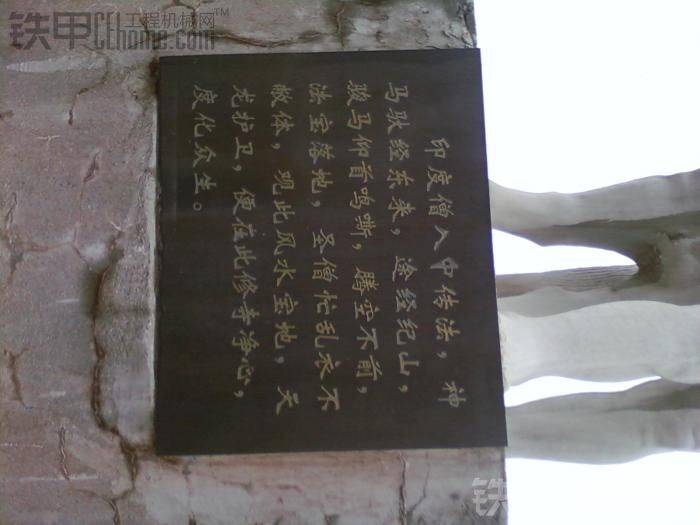 铁甲工程机械网™
CEhome.com
印度僧入中传法，神
马驮经东来，途经纪山，
骏马仰首鸣嘶，腾空不前，
法宝落地，圣僧忙乱衣不
敝体，观此风水宝地，天
龙护卫，便在此修寺净心，
度化众生。
铁